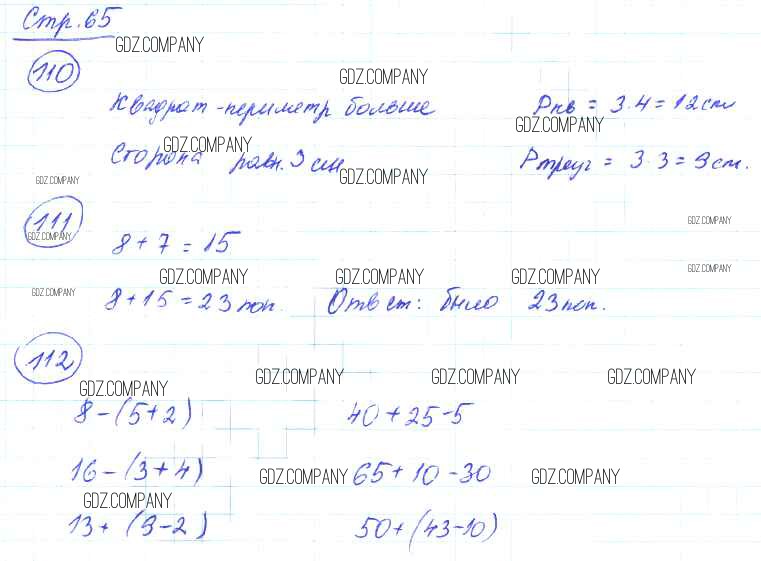 Стр. 65
GDZ.COMPANY
110
GDZ.COMPANY
Квадрат - периметр больше Pкв = 3·4 = 12 см
GDZ.COMPANY
GDZ.COMPANY
Сторона равн. 3 см Pтреуг = 3·3 = 9 см.
GDZ.COMPANY GDZ.COMPANY
111
GDZ.COMPANY
GDZ.COMPANY
8 + 7 = 15
GDZ.COMPANY GDZ.COMPANY GDZ.COMPANY GDZ.COMPANY
GDZ.COMPANY
8 + 15 = 23 поп. Ответ: было 23 поп.
112
GDZ.COMPANY GDZ.COMPANY GDZ.COMPANY GDZ.COMPANY
8 - (5 + 2) 40 + 25 - 5
16 - (3 + 4) GDZ.COMPANY 65 + 10 - 30 GDZ.COMPANY
GDZ.COMPANY
13 + (9 - 2) 50 + (43 - 10)